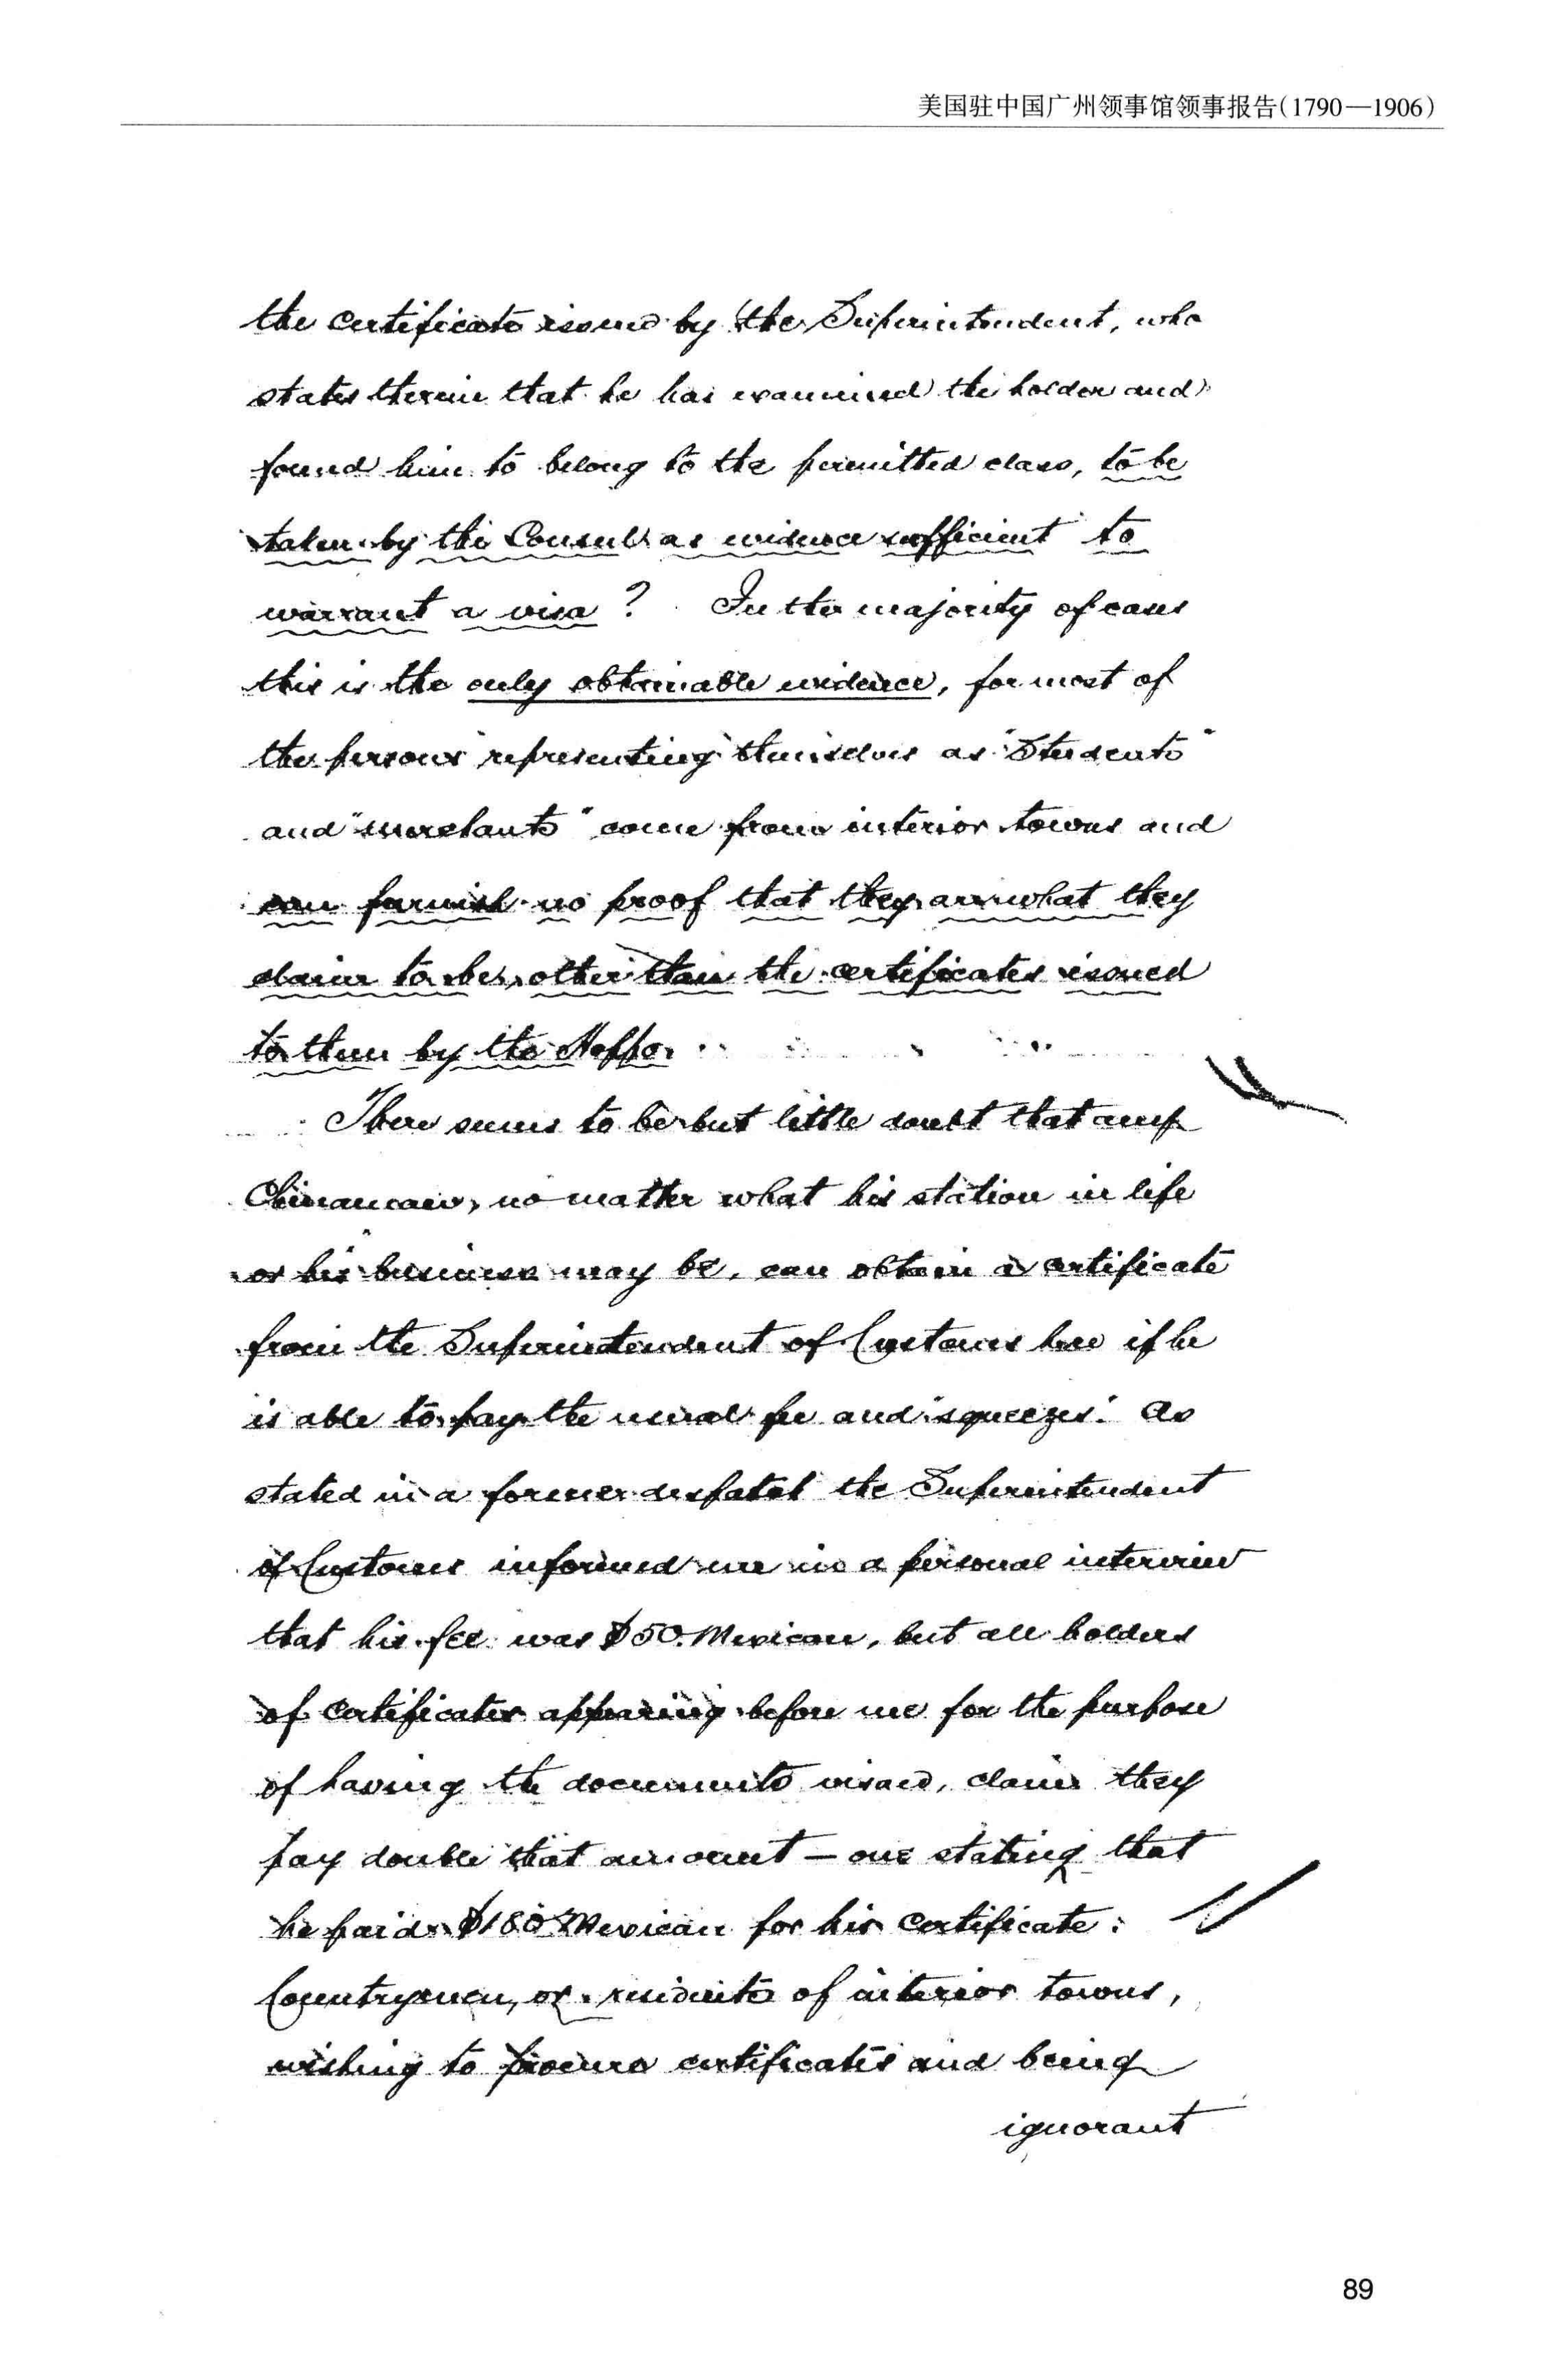 美国驻中国广州领事馆领事报告(1790—1906)
the certificate issued by the Superintendent, who
states therein that he has examined the holder and
found him to belong to the permitted class, to be
taken by the Consul as evidence sufficient to
warrant a visa? In the majority of cases
this is the only obtainable evidence, for most of
the persons representing themselves as "Students"
and "merchants" come from interior towns and
can furnish no proof that they are what they
claim to be, other than the certificates issued
to them by the Hoppo.
There seems to be but little doubt that any
Chinaman, no matter what his station in life
or his business may be, can obtain a certificate
from the Superintendent of Customs here if he
is able to pay the usual fee and "squeezes". As
stated in a former despatch the Superintendent
of Customs informed me in a personal interview
that his fee was $50. Mexican, but all holders
of certificates appearing before me for the purpose
of having the documents visaed, claim they
pay double that amount — one stating that
he paid $180 Mexican for his certificate.
Countrymen, or residents of interior towns,
wishing to procure certificates and being
ignorant
89